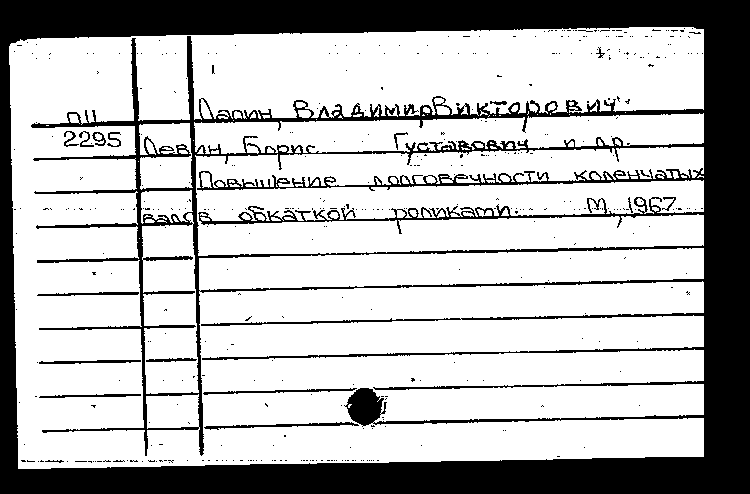 ПЦ Лапин, Владимир Викторович
2295 Левин, Борис Густавович и др.
Повышение долговечности коленчатых
валов обкаткой роликами. М., 1967.